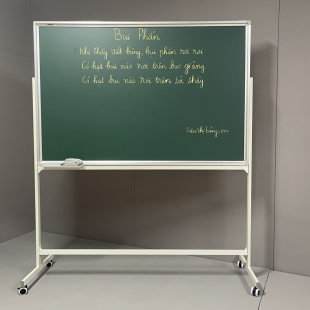 Bụi Phấn
Khi thầy viết bảng, bụi phấn rơi rơi
Có hạt bụi nào rơi trên bục giảng
Có hạt bụi nào rơi trên tóc thầy
Siêu thị bảng.vn